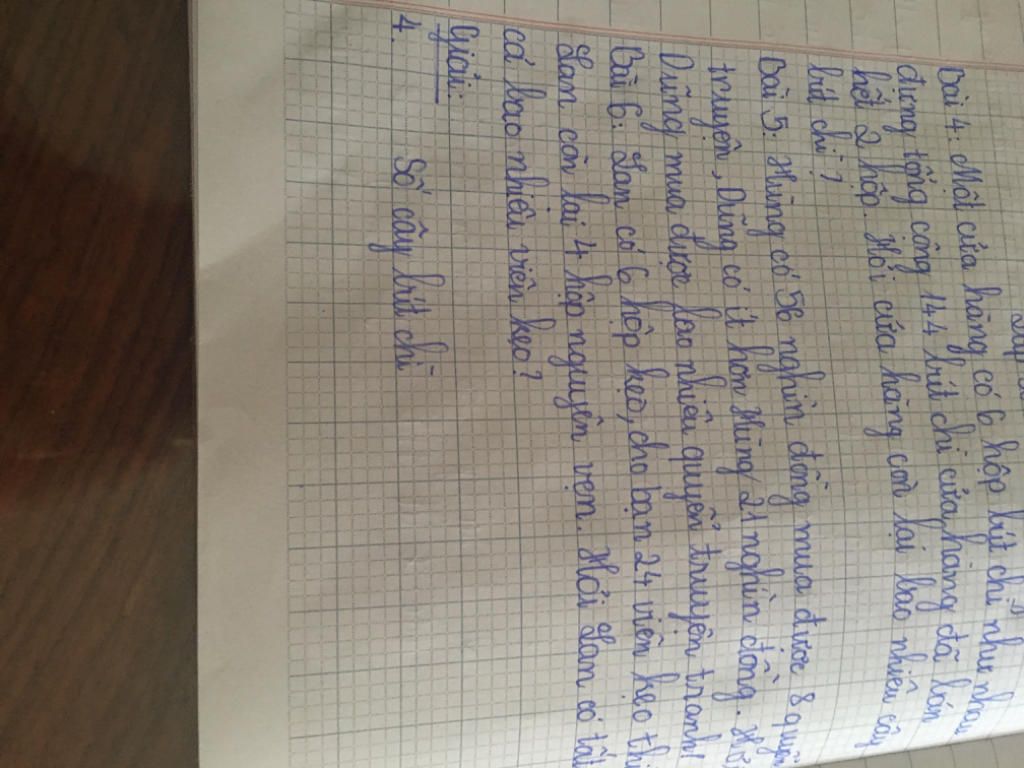 Bài 4: Một cửa hàng có 6 hộp bút chì như nhau
đựng tổng cộng 144 bút chì cửa hàng đã bán
hết 2 hộp. Hỏi cửa hàng còn lại bao nhiêu cây
bút chì?
Bài 5: Hùng có 56 nghìn đồng mua được 8 quyển
truyện, Dũng có ít hơn Hùng 21 nghìn đồng. Hỏi
Dũng mua được bao nhiêu quyển truyện tranh?
Bài 6: Lan có 6 hộp kẹo, cho bạn 24 viên kẹo thì
Lan còn lại 4 hộp nguyên vẹn. Hỏi Lan có tất
cả bao nhiêu viên kẹo?
Giải:
4. Số cây bút chì